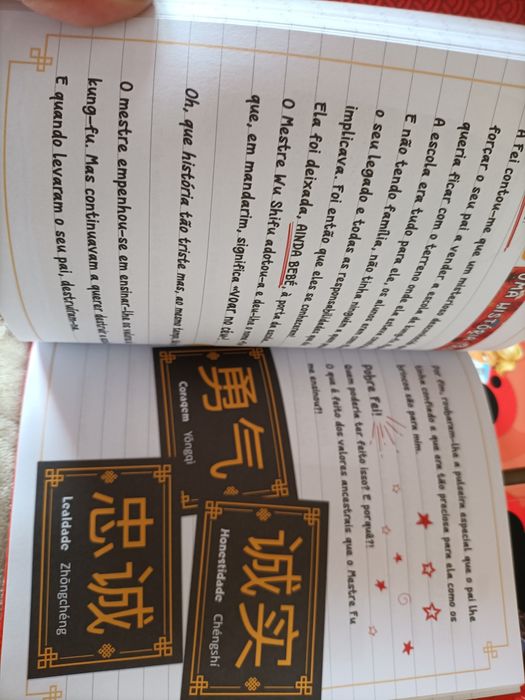 UMA HISTÓRIA
A Fei contou-me que um misterioso
forçar o seu pai a vender a escola
queria ficar com o terreno onde ela
A escola era tudo para ele, os alunos
E não tendo família, não tinha
o seu legado e todas as responsabilidades
implicava. Foi então que eles se conheceram
Ela foi deixada, AINDA BEBÉ, à porta da
O Mestre Wu Shifu adotou-a e deu-lhe o nome
que, em mandarim, significa «voar no céu»
Oh, que história tão triste mas, ao mesmo
O mestre empenhou-se em ensinar-lhe os valores
kung-fu. Mas continuavam a querer destruir
E quando levaram o seu pai, destruíram-na
Por fim, roubaram-lha a pulseira especial que o pai lhe
tinha confiado e que era tão preciosa para ela como os
brincos são para mim.
Pobre Fei!
Quem poderia ter feito isso? E porquê?!
O que é feito dos valores ancestrais que o Mestre Fu
me ensinou?!
勇气
Coragem Yǒngqì
诚实
Honestidade Chéngshí
忠诚
Lealdade Zhōngchéng